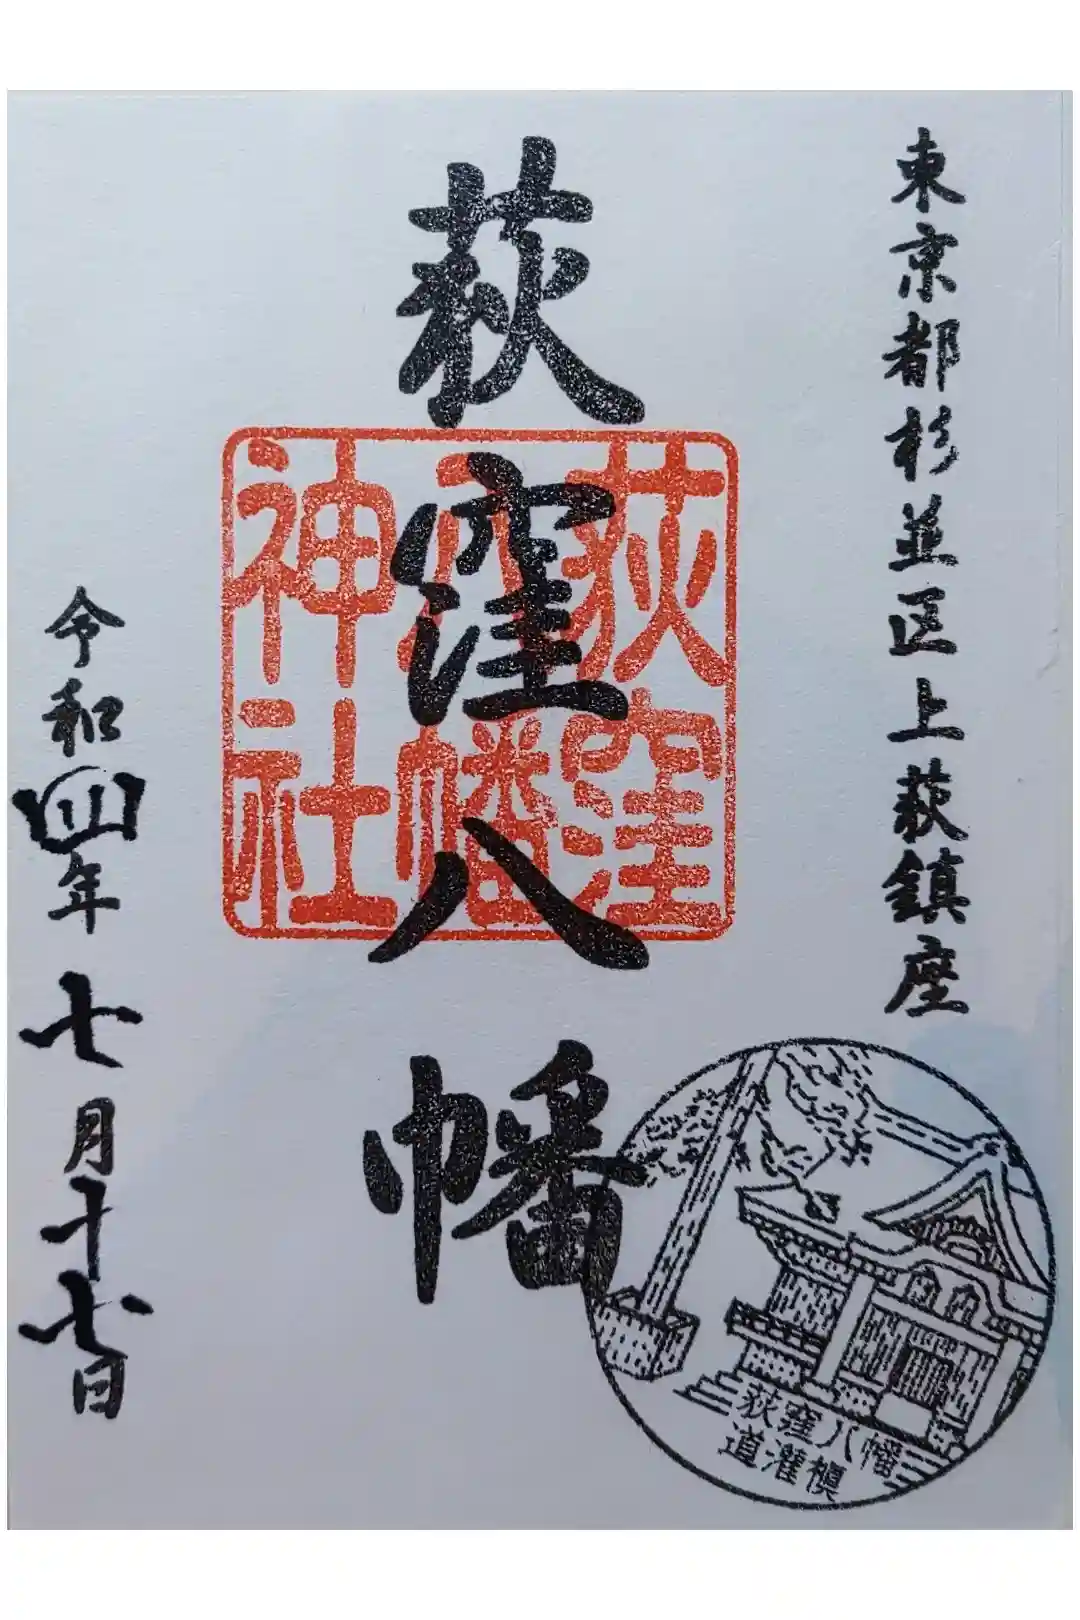 東京都杉並区上荻鎮座
荻窪八幡
荻窪
八幡
神社
令和四年七月十七日
荻窪八幡
道灌槙